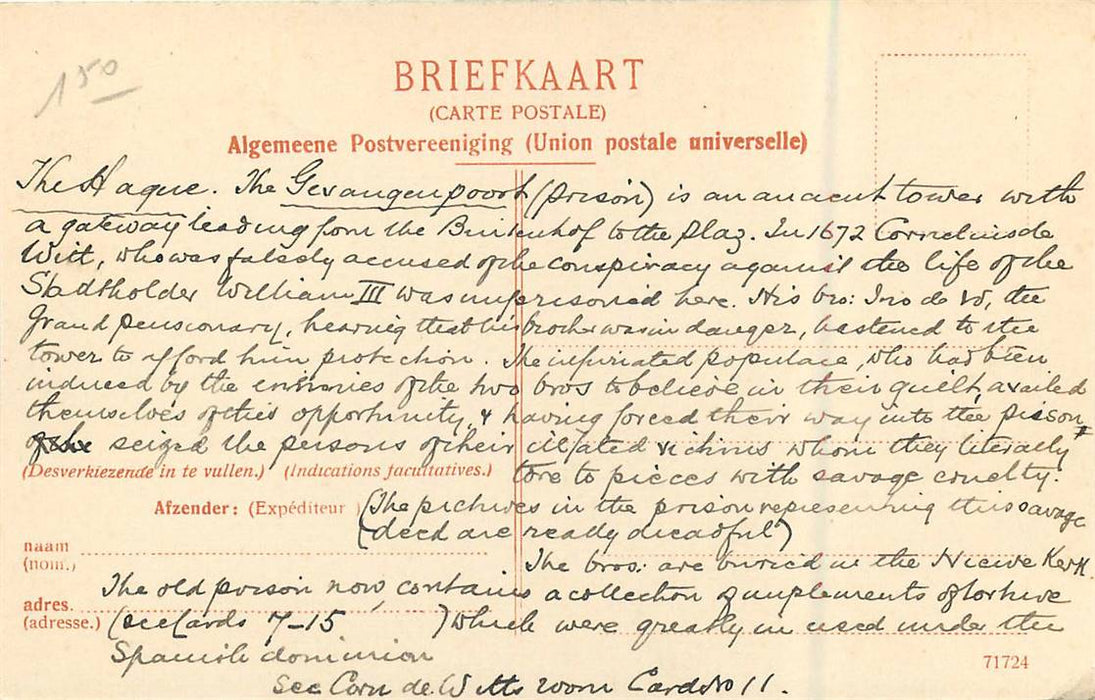 150
BRIEFKAART
(CARTE POSTALE)
Algemeene Postvereeniging (Union postale universelle)
The Hague. The Gevangenpoort (prison) is an ancient tower with
a gateway leading from the Binnenhof to the Plaz. In 1672 Cornelius de
Witt, who was falsely accused of the conspiracy against the life of the
Stadtholder William III was imprisoned here. His bro: Jno de W, the
Grand pensionary, hearing that his brother was in danger, hastened to the
tower to afford him protection. The infuriated populace, who had been
induced by the enemies of the two bros to believe in their guilt, availed
themselves of this opportunity, & having forced their way into the prison
seized the persons of their ill fated victims whom they literally
tore to pieces with savage cruelty.
(Desverkiezende in te vullen.) (Indications facultatives.)
Afzender: (Expéditeur
(The pictures in the prison representing this savage
deed are really dreadful)
naam
(nom.)
The bros: are buried in the Nieuwe Kerk.
The old prison now contains a collection of implements of torture
adres.
(adresse.)
(see Cards 7-15 ) which were greatly in used under the
Spanish dominion
71724
See Corn de Witts room Card No 11.